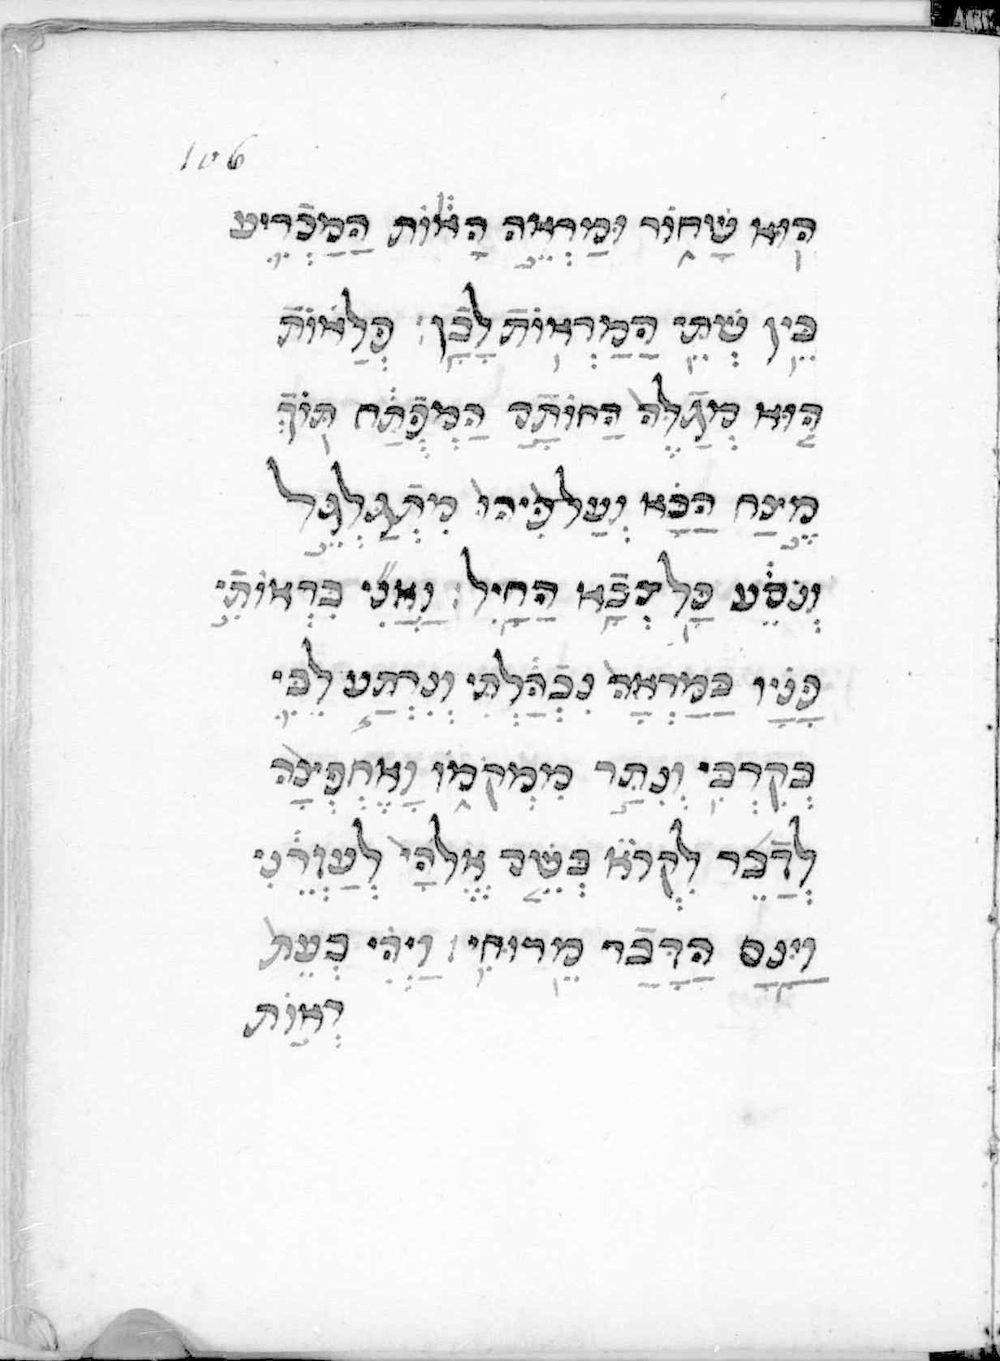 106
הוּא שָׁחוֹר וּמַרְאֵה הָאוֹת הַמַּכְרִיעַ
בֵּין שְׁתֵּי הַמַּרְאוֹת לָבָן׃ פְּלָאוֹת
הוּא מְגַלֶּה הַחוֹתָם הַמְפֻתָּח תּוֹךְ
מֵצַח הַבָּא וְעַל פִּיהוּ מִתְגַּלְגֵּל
וְנֹסֵעַ כָּל צְבָא הַחַיִל׃ וַאֲנִי בִּרְאוֹתִי
פָּנָיו בַּמַּרְאָה נִבְהַלְתִּי וְנִרְתַּע לִבִּי
בְּקִרְבִּי וְנִתַּר מִמְּקֹמוֹ וָאֶחְפְּצָה
לְדַבֵּר לִקְרֹא בְּשֵׁם אֱלֹהַי לְעָזְרֵנִי
וַיָּנָס הַדָּבָר מֵרוּחִי׃ וַיְהִי כְּעֵת
רְאוֹת